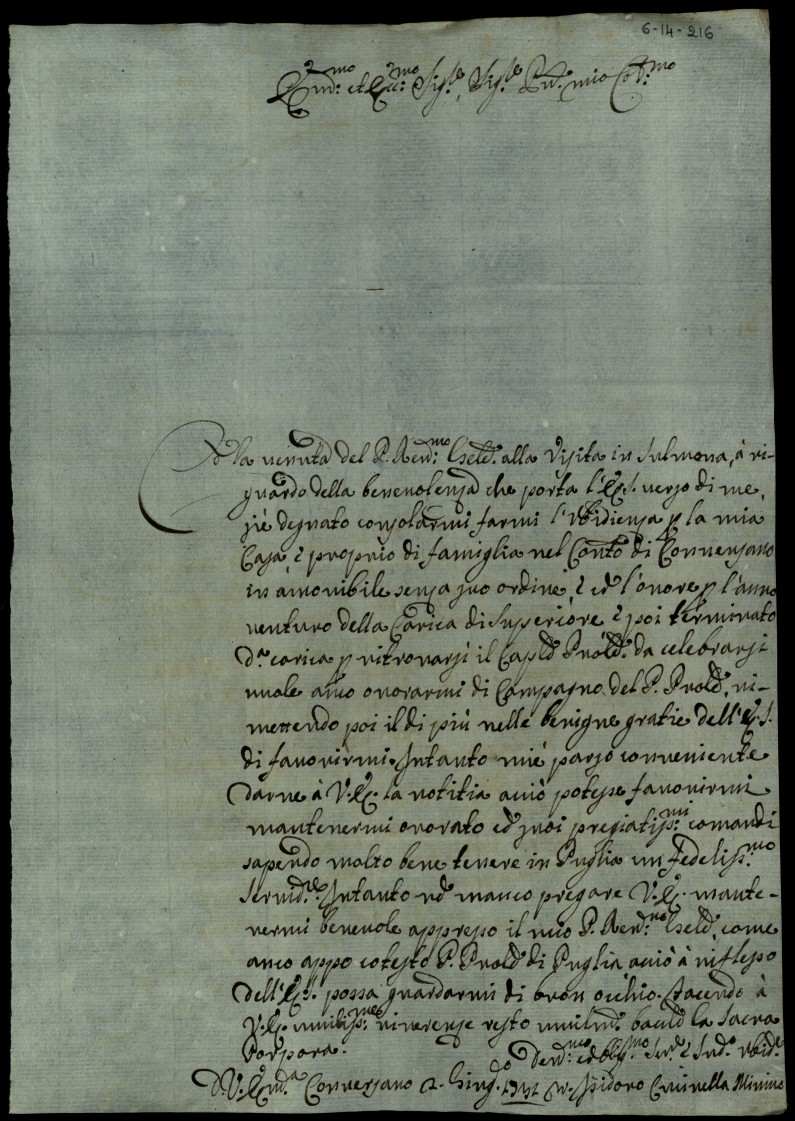 6-14-216
Em:mo et Ecc:mo Sig.re, Sig.re P'ne mio Col:mo
la venuta del P. Rev:mo alla Visita in Sulmona, à ri-
guardo della benevolenza che porta l'E.S. verso di me,
sié degnato consolarmi farmi l'ubidienza p la mia
Casa, è proprio di famiglia nel Con.to di Conversano
in ámovibile senza suo ordine, è l'onore p l'anno
venturo della Carica di Superiore è poi terminato
d.a carica p ritrovarsi il Cap.lo da celebrarsi
vuole anco onorarmi di Compagno del P. ri-
mettendo poi il di più nelle benigne gratie dell'E.S.
di favorirmi. Intanto mié parso conveniente
darne à V.E. la notitia acciò potesse favorirmi
mantenermi onorato suoi pregiatiss:mi comandi
sapendo molto bene tenere in Puglia un fedeliss:mo
Servid.re Intanto manco pregare V.E. mante-
nermi benevole appresso il mio P. Rev:mo come
anco app.o cotesto P. di Puglia acciò à riflesso
dell'E.S. possa guardarmi di buon occhio. Facendo à
V.E. umiliss:me riverenze resto la Sacra
Porpora.
D. V. Em:a Conversano 2. Giug.o
Dev:mo ed obblig:mo Ser.e
Isidoro Minimo